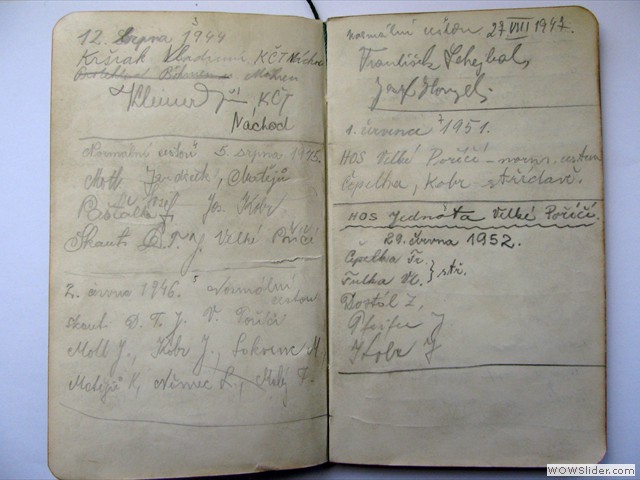 12. srpna 1944
Kršiak Vladimír, KČT Náchod
Kleiner Jiří, KČT
Náchod
Normální cestou 5. srpna 1945.
Motl Jindřich, Matějů
Jos. Kobr.
Skauti D. T. J. Velké Poříčí
2. června 1946. Normální
cestou
skauti D. T. J. V. Poříčí
Motl J., Kobr J., M.,
Matějů K., Němec L., Malý F.
normální cestou 27. VIII 1947.
František
Josef
1. července 1951.
HOS Velké Poříčí - norm. cestou
Čepelka, Kobr - střídavě.
HOS Jednota Velké Poříčí.
29. června 1952.
Čepelka Fr.
Fulka Vl. } stř.
Dostál Z,
Pfeifer J
Kobr J
WOWSlider.com